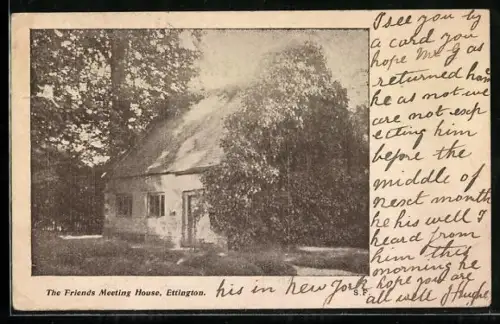 I see you by
a card you
hope Mr G as
returned home
he as not we
are not exp
ecting him
before the
middle of
next month
he his well I
heard from
him this
morning he
his in new york hope you are
all well J Hughes
The Friends Meeting House, Ettington.